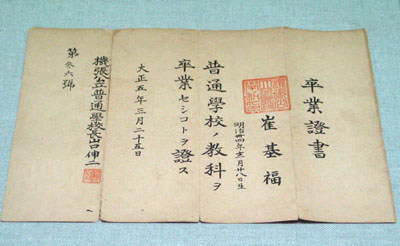 卒業證書
崔基福
明治卅四年十一月廿八日生
普通學校ノ教科ヲ
卒業セシコトヲ證ス
大正五年三月二十五日
公立普通學校長
第參六號